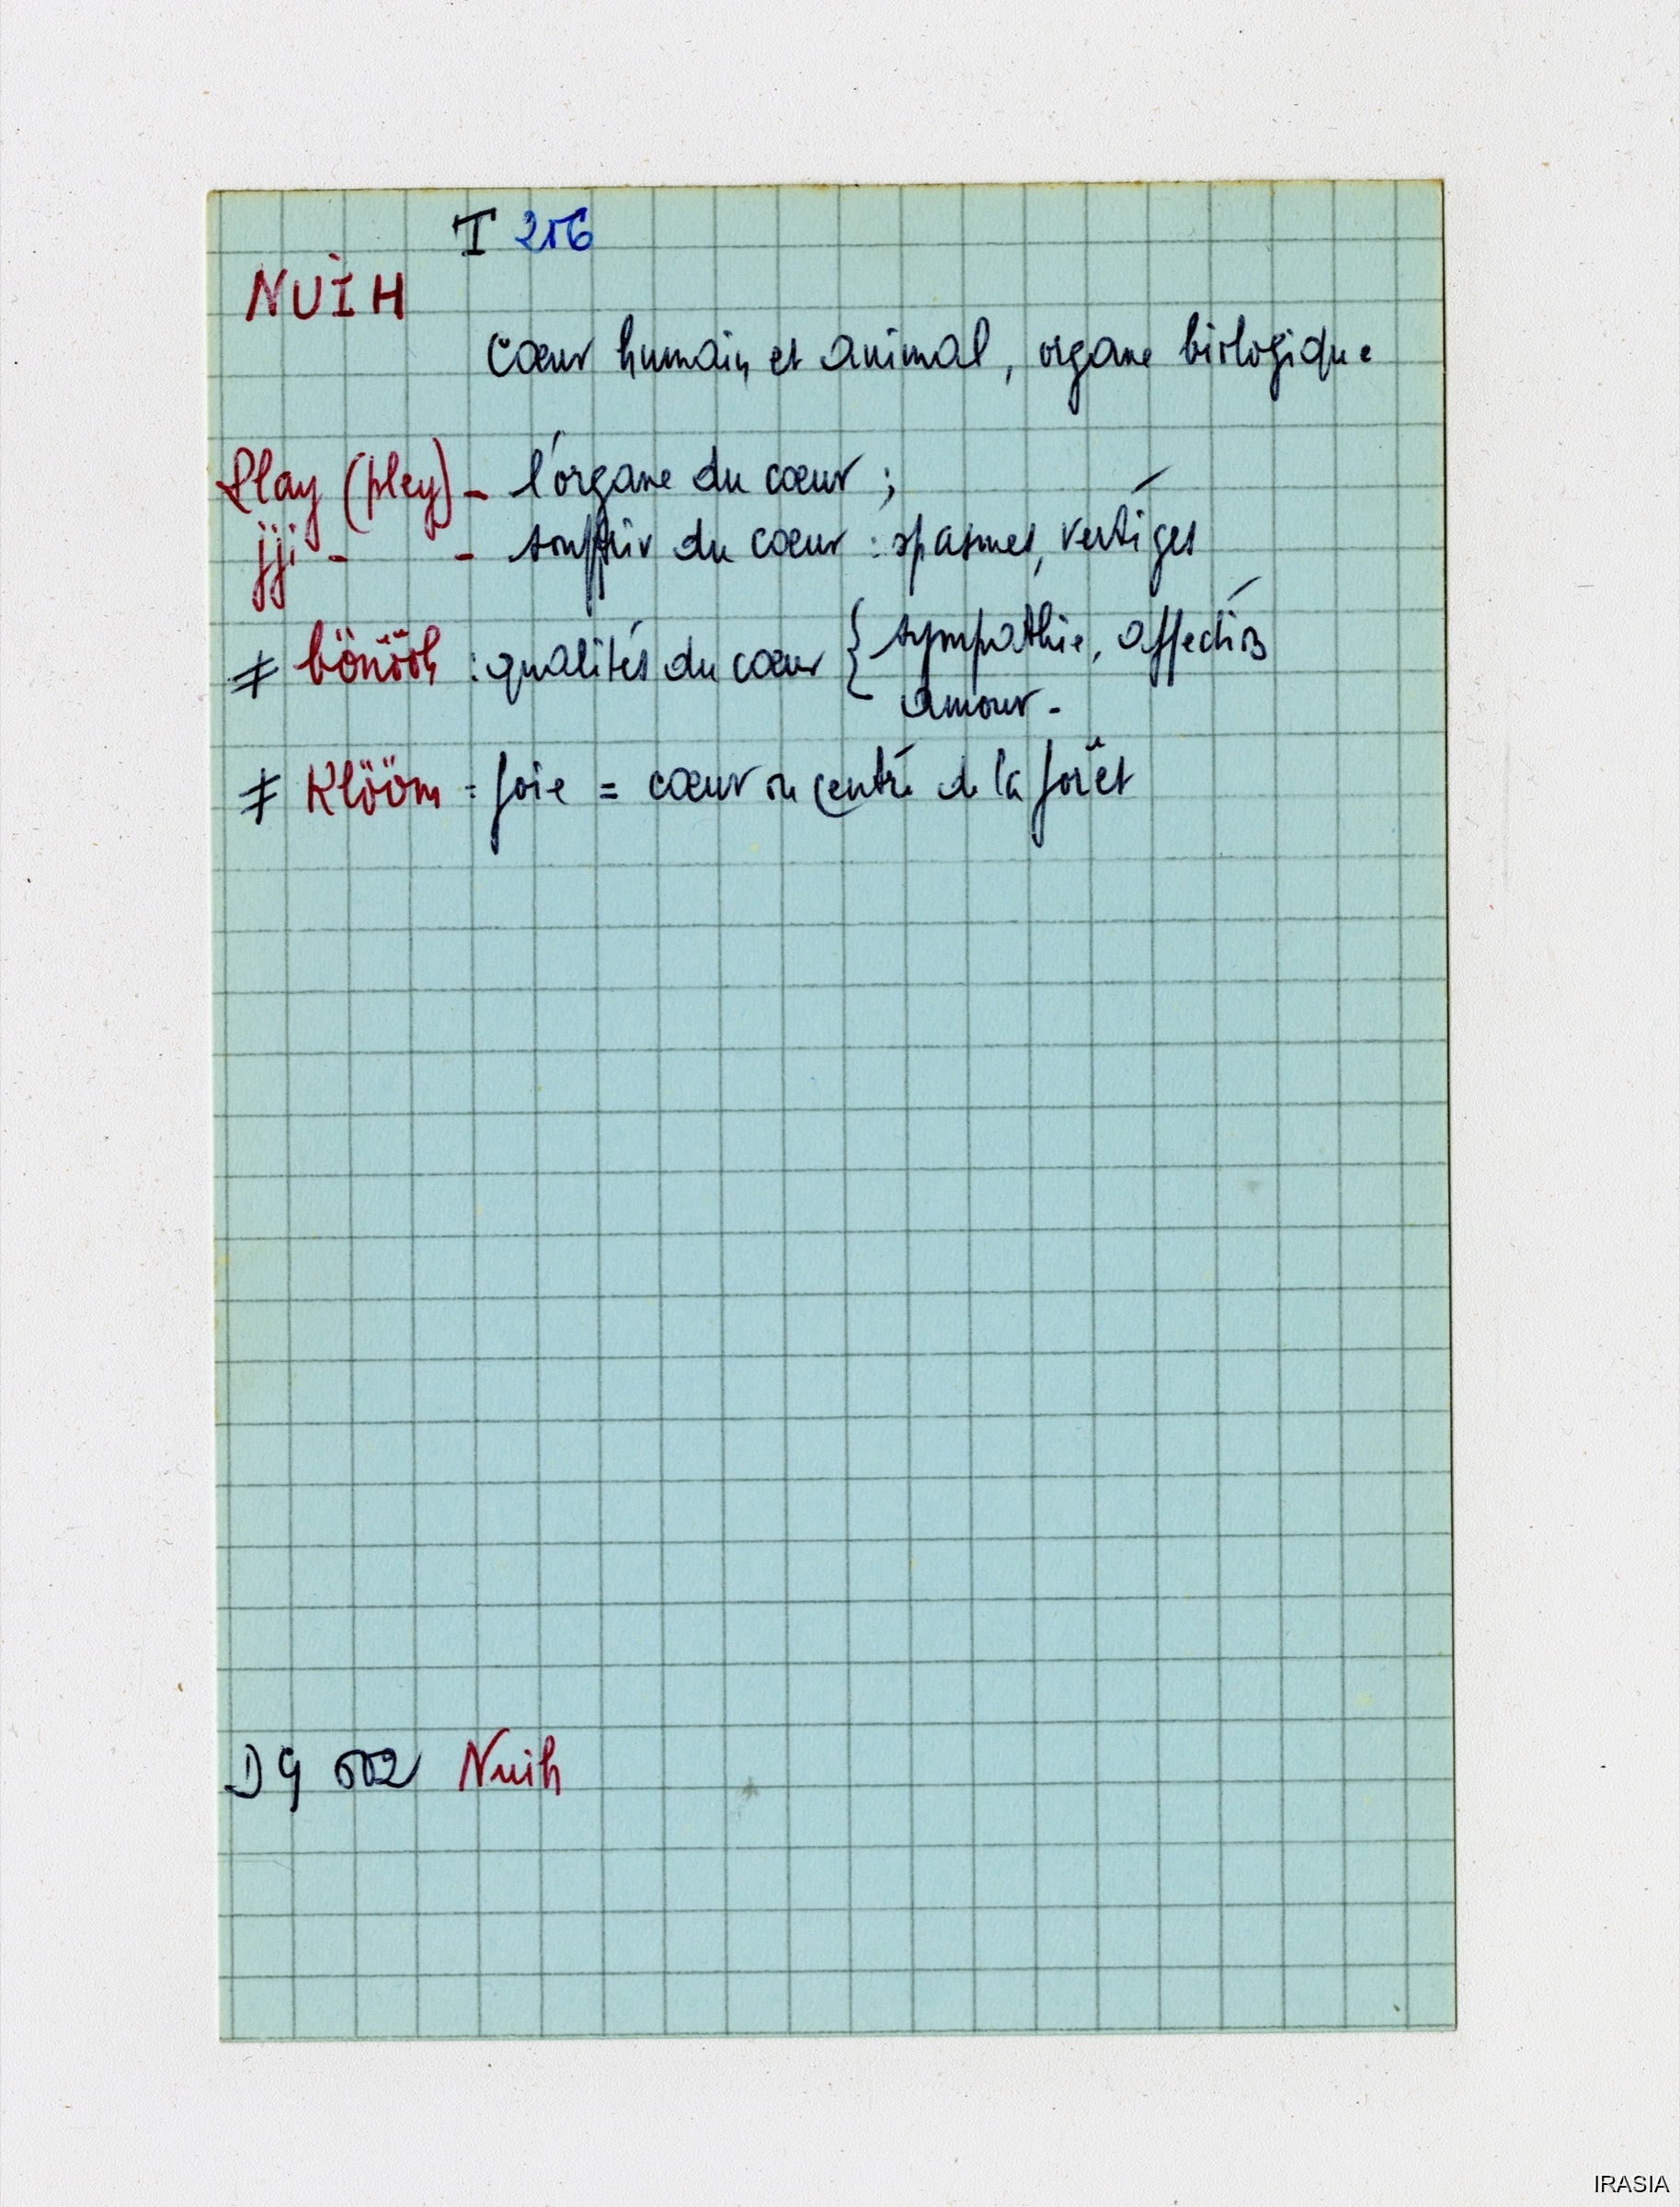 I 256
NUÏH
Cœur humain et animal, organe biologique
Play (pley) - l'organe du cœur ;
jji - - souffrir du cœur : spasmes, vertiges
≠ bönööh : qualités du cœur { sympathie, affection
amour -
≠ Klööm : foie = cœur ou centre de la forêt
DG 602 Nuih
IRASIA